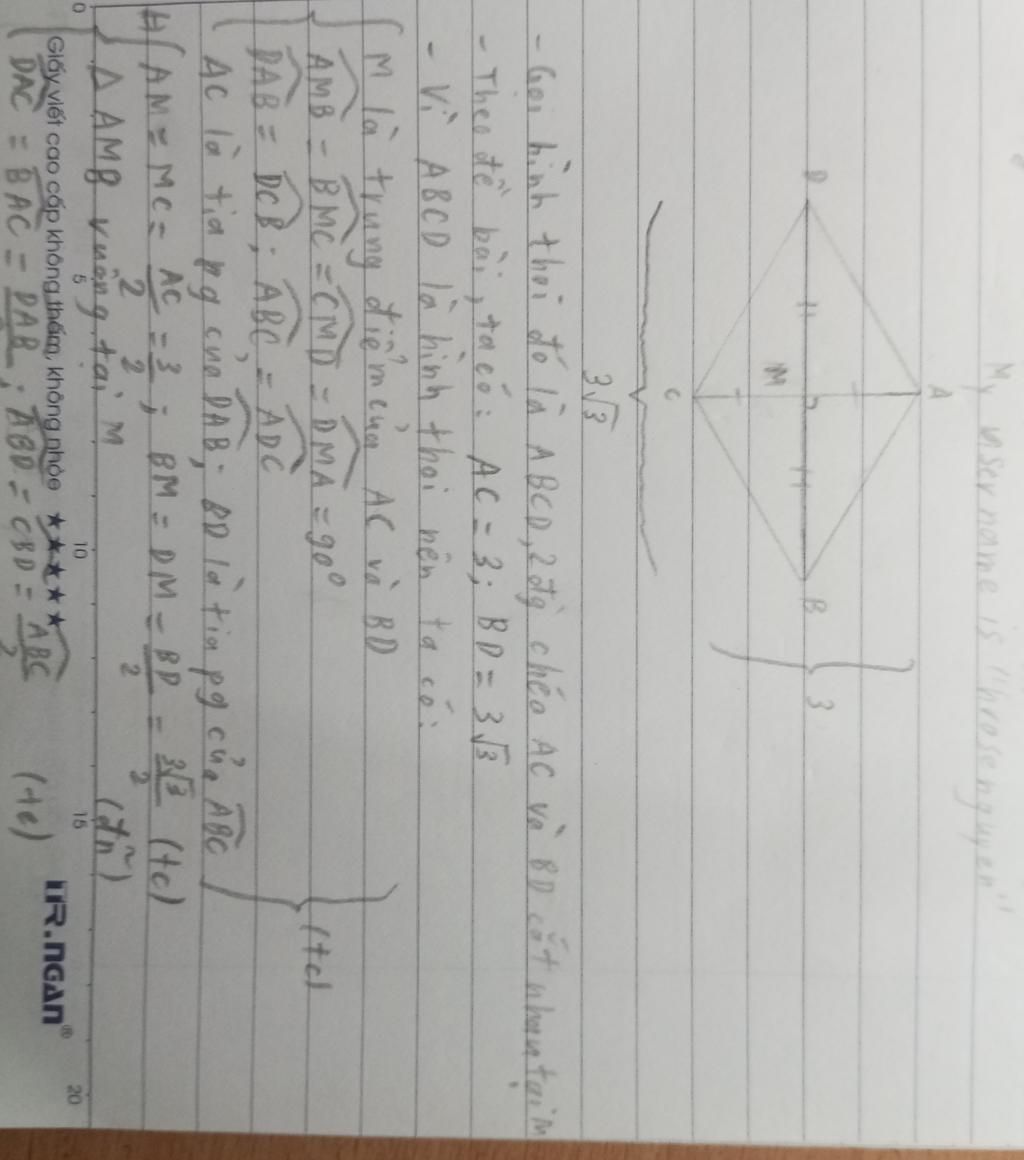 My username is "hrosenguyen"
A
D
M
B
3
C
3√3
- Gọi hình thoi đó là ABCD, 2 đg chéo AC và BD cắt nhau tại M
- Theo đề bài, ta có: AC = 3; BD = 3√3
- Vì ABCD là hình thoi nên ta có:
M là trung điểm của AC và BD
AMB = BMC = CMD = DMA = 90°
DAB = DCB; ABC = ADC
AC là tia pg của DAB; BD là tia pg của ABC
(tc)
AM = MC = AC/2 = 3/2; BM = DM = BD/2 = 3√3/2 (tc)
Δ AMB vuông tại M (đn)
DAC = BAC = DAB/2; ABD = CBD = ABC/2 (tc)
Giấy viết cao cấp không thấm, không nhòe ★★★★★ TR.NGAN®
0 5 10 15 20